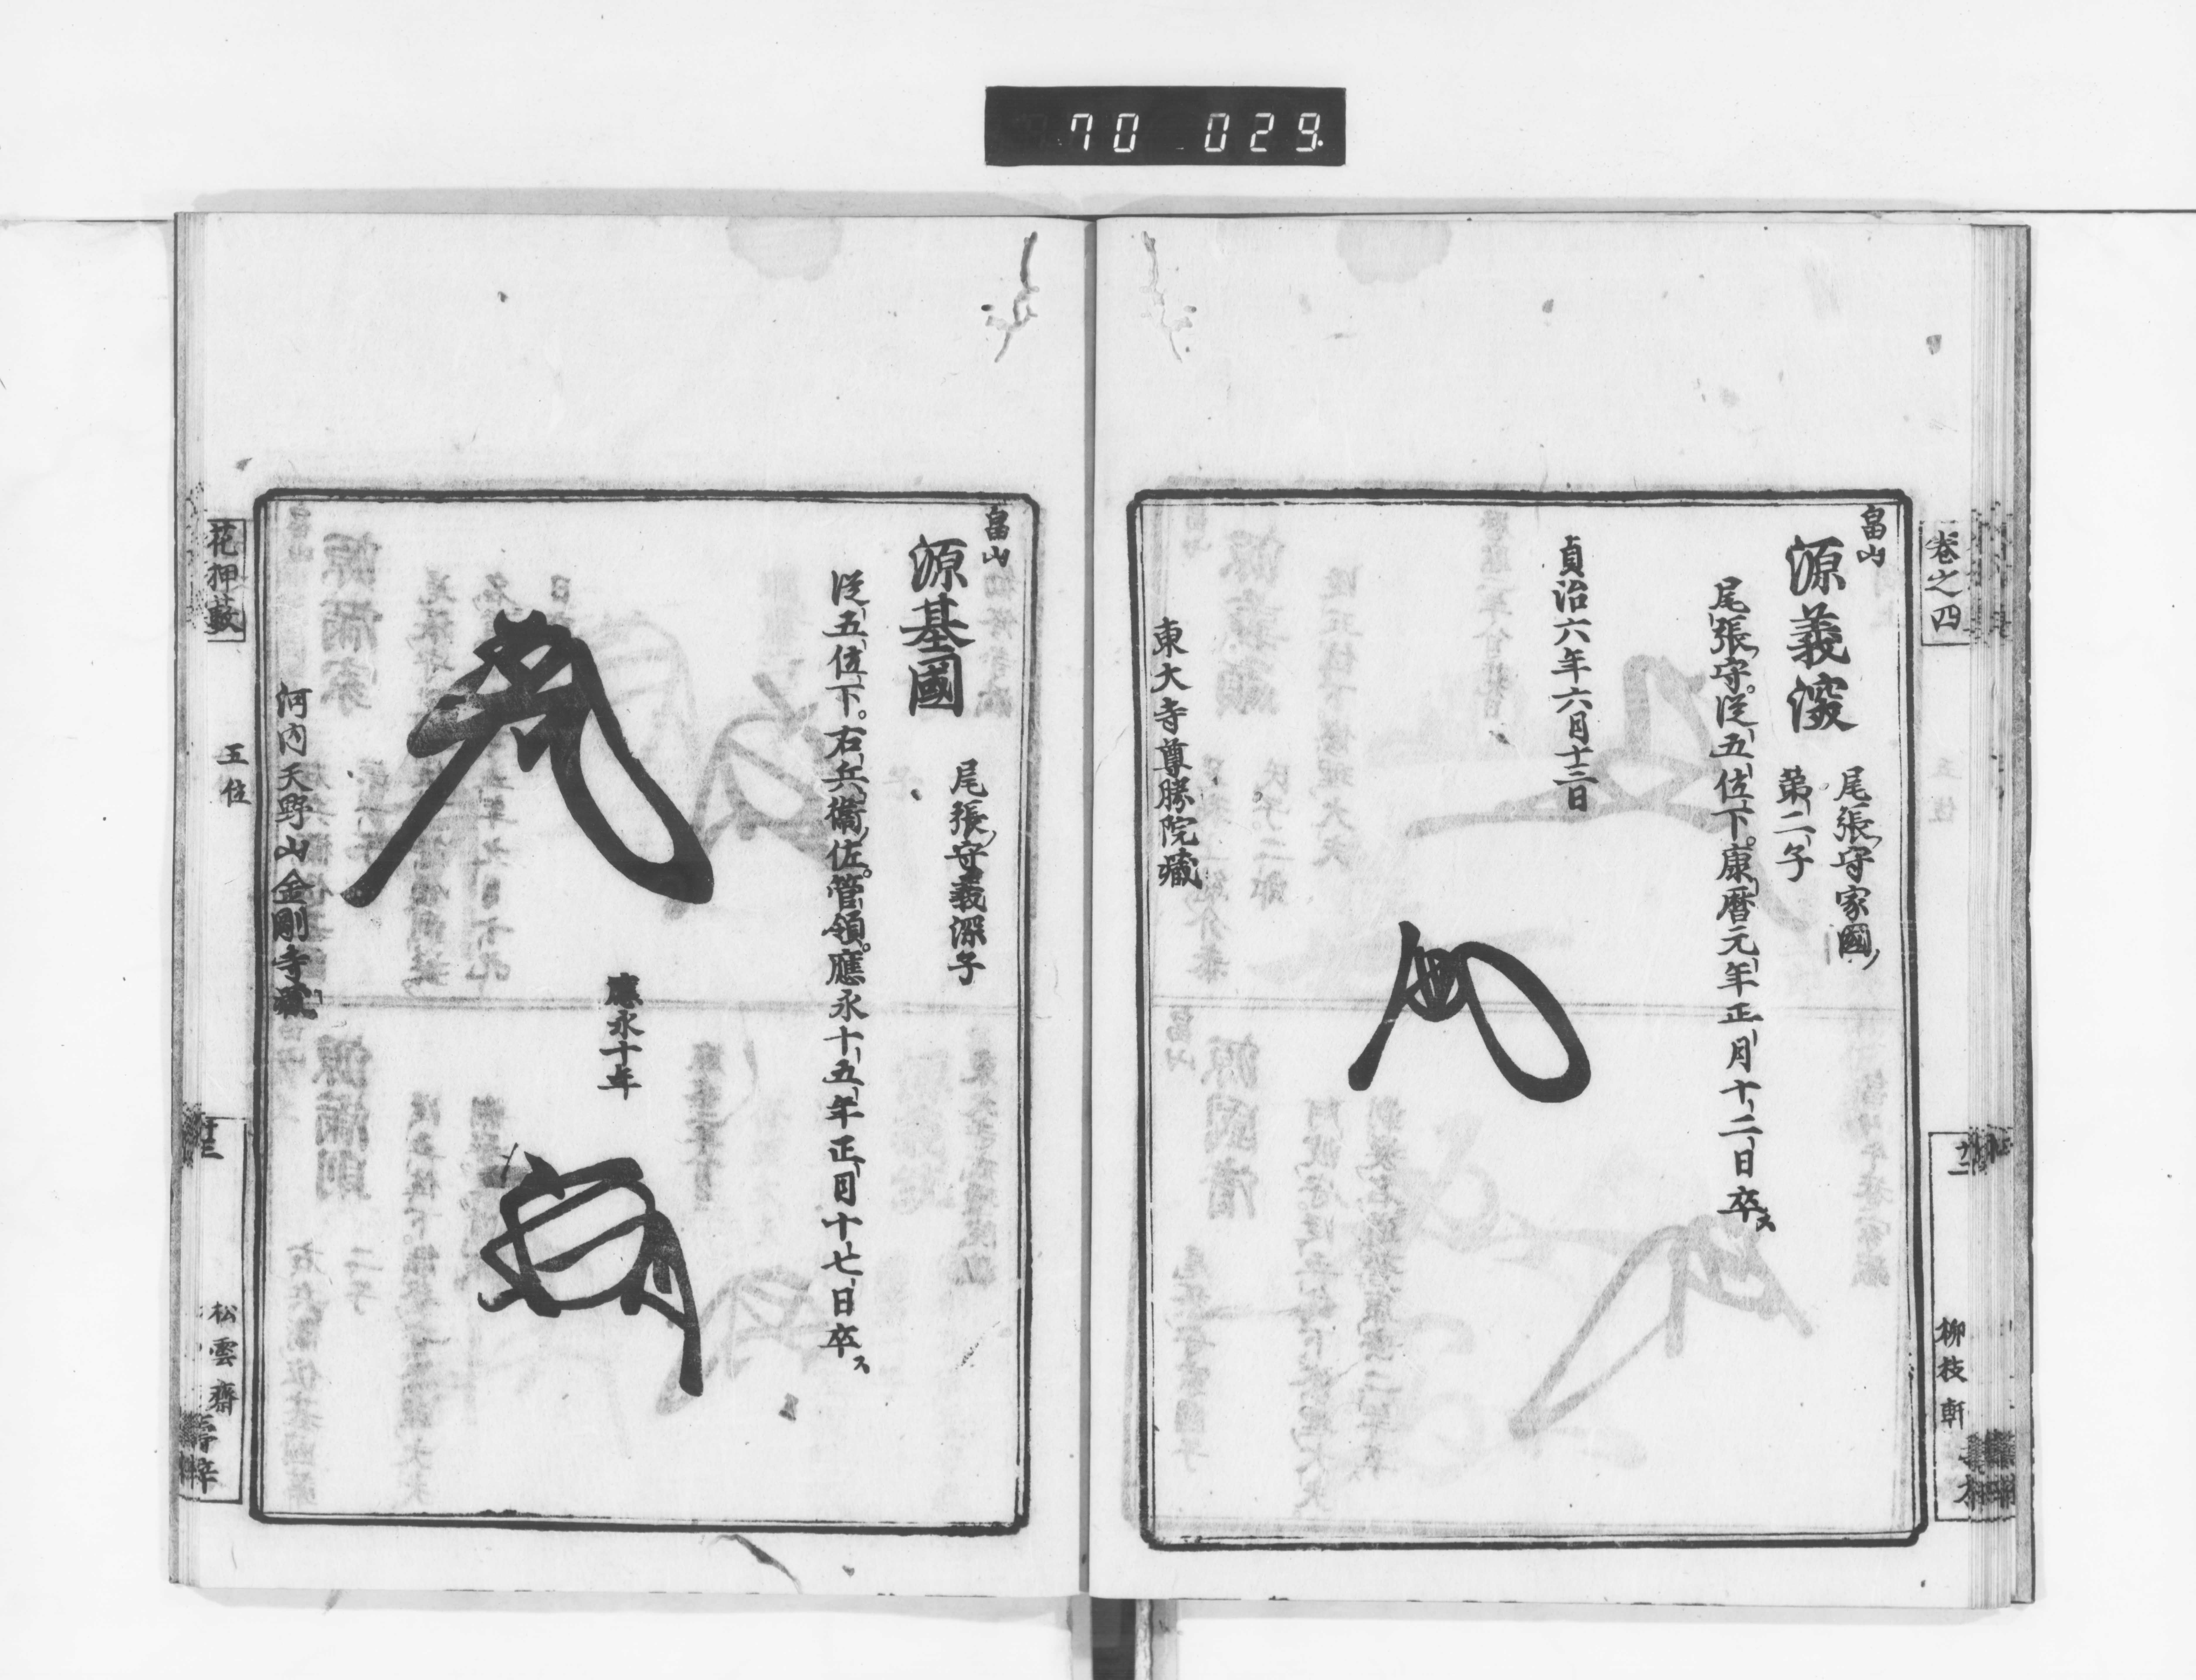 70 029
卷之四
五位
十二
柳枝軒
畠山
源義深
尾張守家國
第二子
尾張守。從五位下。康曆元年正月十二日卒ス
貞治六年六月十三日
東大寺尊勝院藏
畠山
源基國
尾張守義深子
從五位下。右兵衞佐。管領。應永十五年正月十七日卒ス
應永十年
河内天野山金剛寺藏
花押藪
五位
十三
松雲齋
壽梓